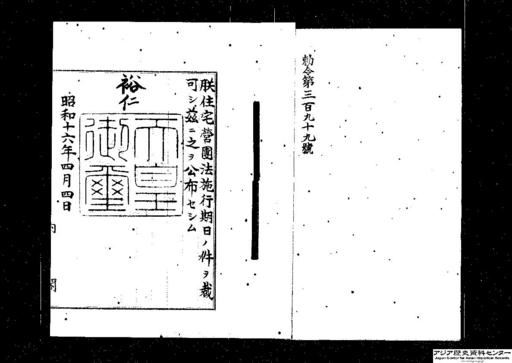 勅令第三百九十九號
朕住宅營團法施行期日ノ件ヲ裁
可シ茲ニ之ヲ公布セシム
裕仁
天皇
御璽
昭和十六年四月四日
内閣
アジア歴史資料センター
Japan Center for Asian Historical Records